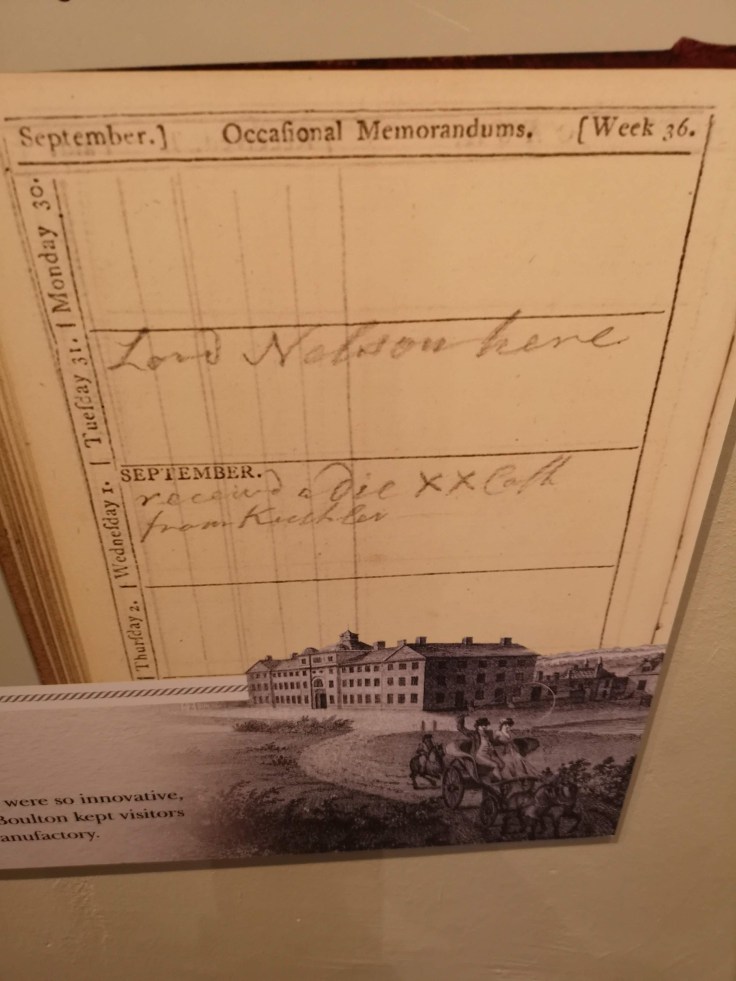 September.] Occaſional Memorandums. [Week 36.
Monday 30.
Tueſday 31.
Lord Nelson here
Wedneſday 1.
SEPTEMBER.
received a Die XX Cash
from Kuchler
Thurſday 2.
were so innovative,
Boulton kept visitors
anufactory.